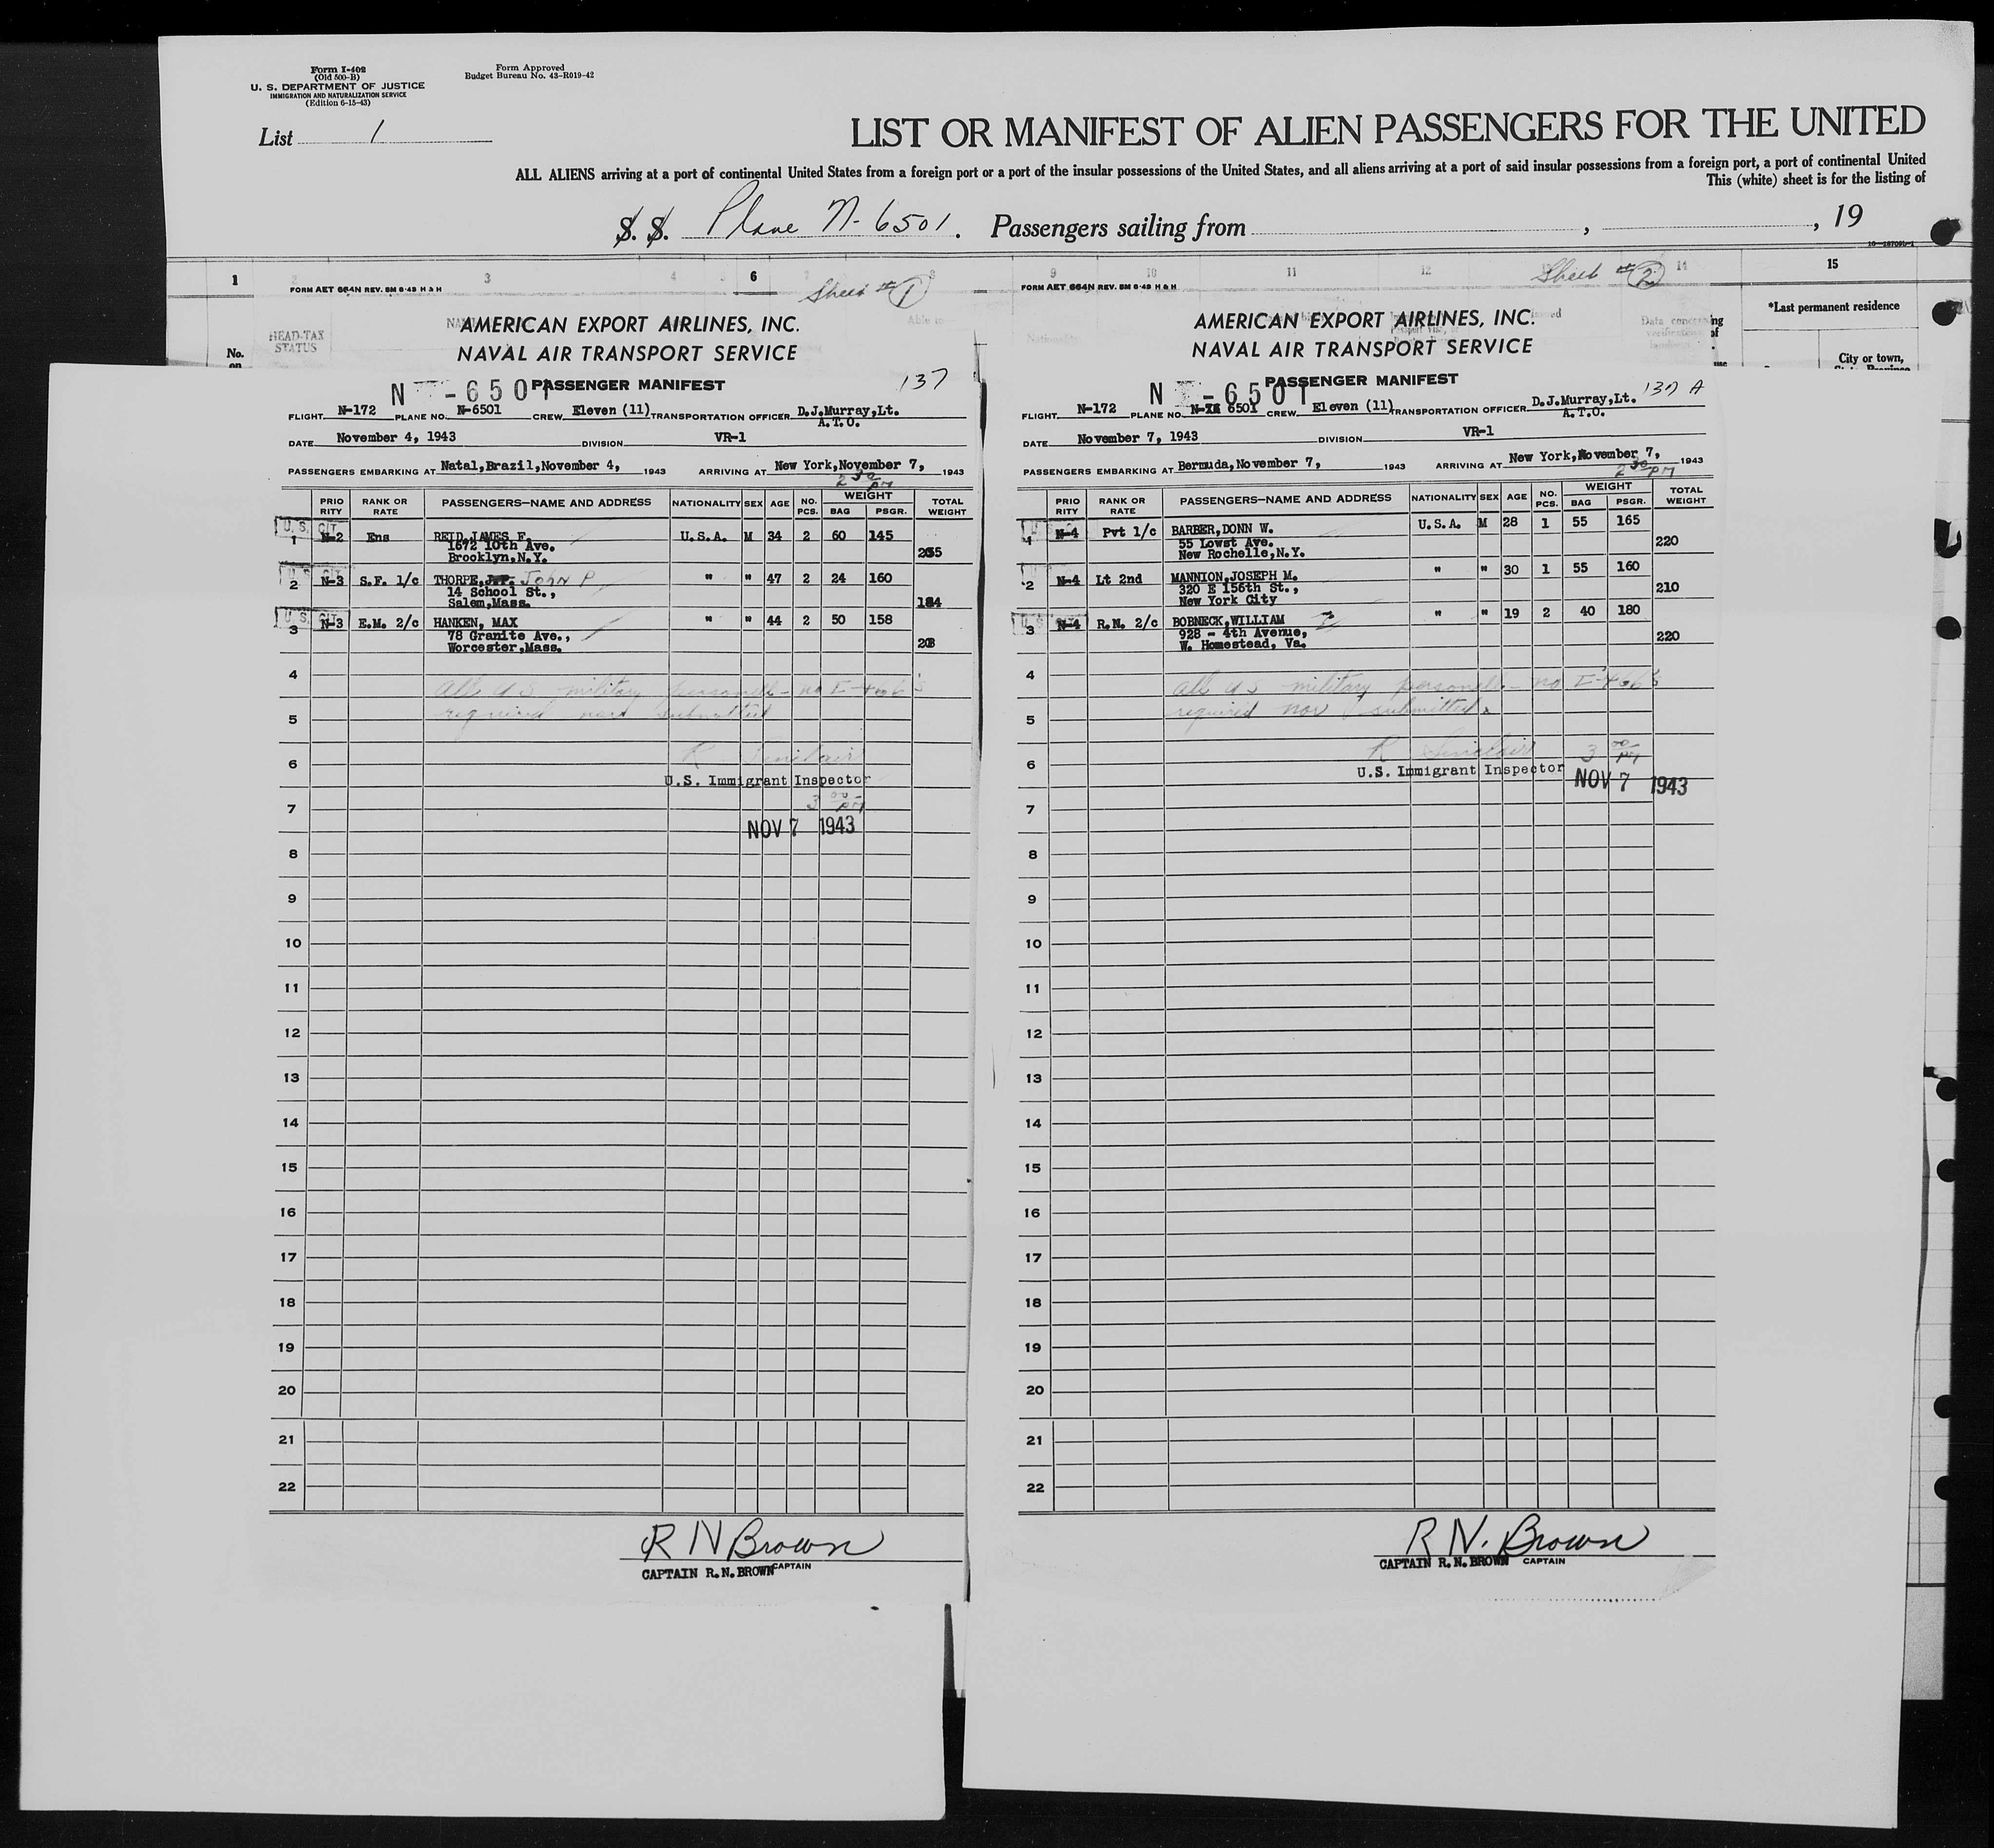 Form I-402
(Old 500-B)
U. S. DEPARTMENT OF JUSTICE
IMMIGRATION AND NATURALIZATION SERVICE
(Edition 6-15-43)
Form Approved
Budget Bureau No. 43-R019-42
List 1
LIST OR MANIFEST OF ALIEN PASSENGERS FOR THE UNITED
ALL ALIENS arriving at a port of continental United States from a foreign port or a port of the insular possessions of the United States, and all aliens arriving at a port of said insular possessions from a foreign port, a port of continental United
This (white) sheet is for the listing of
S. S. Plane N-6501. Passengers sailing from , , 19
1 2 3 4 6 8 9 10 11 12 14 15
HEAD-TAX
STATUS
No.
on
Able to
Nationality
Issued
Data concerning
*Last permanent residence
City or town,
FORM AET 664N REV. 5M 6-43 H & H
Sheet # 1
AMERICAN EXPORT AIRLINES, INC.
NAVAL AIR TRANSPORT SERVICE
N -6501 PASSENGER MANIFEST 137
FLIGHT N-172 PLANE NO. N-6501 CREW Eleven (11) TRANSPORTATION OFFICER D.J.Murray,Lt.
A.T.O.
DATE November 4, 1943 DIVISION VR-1
PASSENGERS EMBARKING AT Natal,Brazil,November 4, 1943 ARRIVING AT New York,November 7, 1943
2 30 PM
PRIORITY RANK OR RATE PASSENGERS—NAME AND ADDRESS NATIONALITY SEX AGE NO. PCS. WEIGHT BAG PSGR. TOTAL WEIGHT
U.S. CIT
1 N-2 Ens REID,JAMES F. U.S.A. M 34 2 60 145
1672 10th Ave.
Brooklyn,N.Y.
U.S. CIT
2 N-3 S.F. 1/c THORPE,J.P. John P " " 47 2 24 160
14 School St.,
Salem,Mass. 184
U.S. CIT
3 N-3 E.M. 2/c HANKEN, MAX " " 44 2 50 158
78 Granite Ave.,
Worcester,Mass.
4
All US military personell - no I-466's
5
required nor submitted
6
R Sinclair
U.S. Immigrant Inspector
7
3 00 PM
NOV 7 1943
8
9
10
11
12
13
14
15
16
17
18
19
20
21
22
R N Brown
CAPTAIN R.N.BROWN CAPTAIN
FORM AET 664N REV. 5M 6-43 H & H
Sheet # 2
AMERICAN EXPORT AIRLINES, INC.
NAVAL AIR TRANSPORT SERVICE
N -6501 PASSENGER MANIFEST 137 A
FLIGHT N-172 PLANE NO. 6501 CREW Eleven (11) TRANSPORTATION OFFICER D.J.Murray,Lt.
A.T.O.
DATE November 7, 1943 DIVISION VR-1
PASSENGERS EMBARKING AT Bermuda,November 7, 1943 ARRIVING AT New York,November 7, 1943
2 30 PM
PRIORITY RANK OR RATE PASSENGERS—NAME AND ADDRESS NATIONALITY SEX AGE NO. PCS. WEIGHT BAG PSGR. TOTAL WEIGHT
1 N-4 Pvt 1/c BARBER,DONN W. U.S.A. M 28 1 55 165
55 Lowst Ave. 220
New Rochelle,N.Y.
2 N-4 Lt 2nd MANNION,JOSEPH M. " " 30 1 55 160
320 E 156th St., 210
New York City
3 N-4 R.N. 2/c BOBNECK,WILLIAM " " 19 2 40 180
928 - 4th Avenue, 220
W. Homestead, Va.
4
All US military personell - no I-466's
5
required nor submitted.
6
R Sinclair 3 00 PM
U.S. Immigrant Inspector NOV 7 1943
7
8
9
10
11
12
13
14
15
16
17
18
19
20
21
22
R N. Brown
CAPTAIN R.N.BROWN CAPTAIN